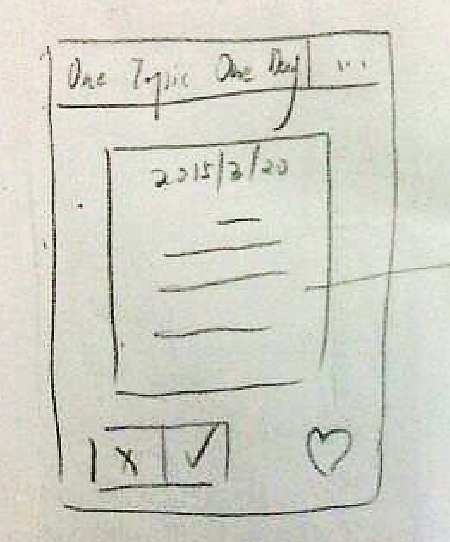 One Topic One Day ...
2015/3/20
X ✓